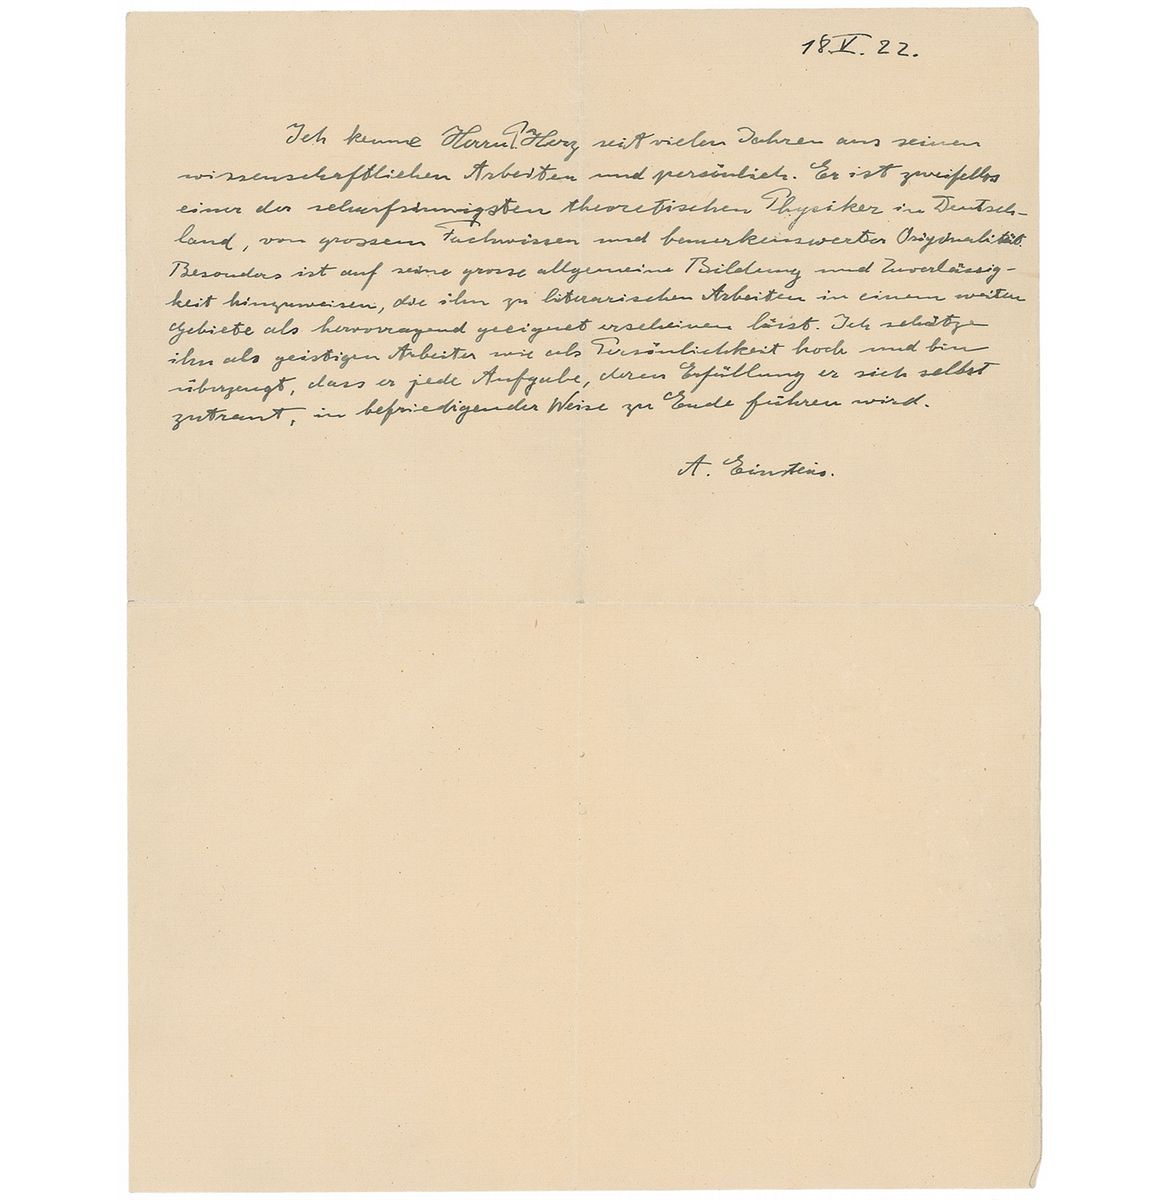 18.V.22.
Ich kenne Herrn P. Herz seit vielen Jahren aus seinen
wissenschaftlichen Arbeiten und persönlich. Er ist zweifellos
einer der scharfsinnigsten theoretischen Physiker in Deutsch-
land, von grossem Fachwissen und bemerkenswerter Originalität.
Besonders ist auf seine grosse allgemeine Bildung und Zuverlässig-
keit hinzuweisen, die ihn zu literarischen Arbeiten in einem weiten
Gebiete als hervorragend geeignet erscheinen lässt. Ich schätze
ihn als geistigen Arbeiter wie als Persönlichkeit hoch und bin
überzeugt, dass er jede Aufgabe, deren Erfüllung er sich selbst
zutraut, in befriedigender Weise zu Ende führen wird.
A. Einstein.